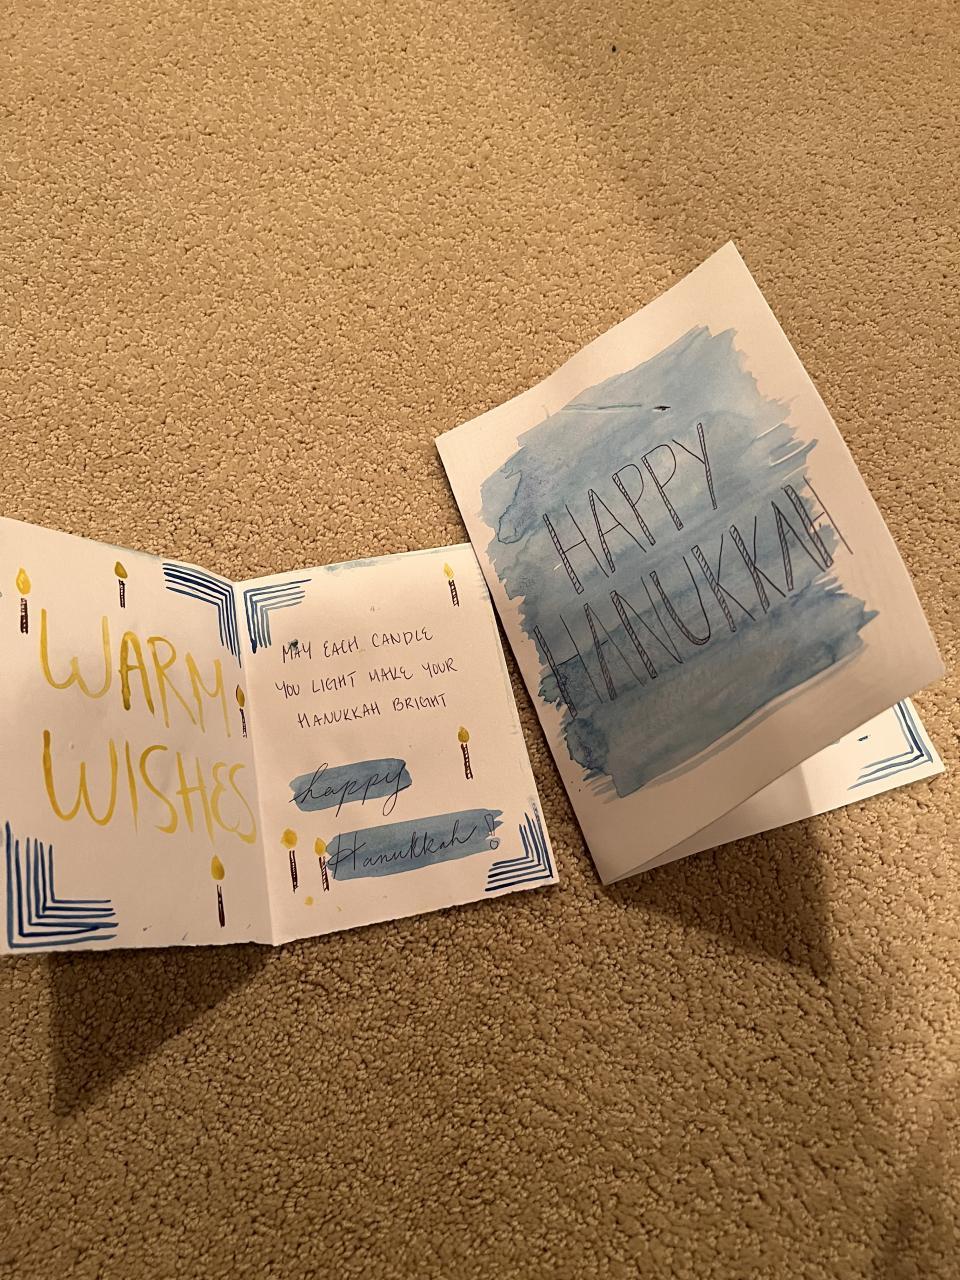 WARM
WISHES
MAY EACH CANDLE
YOU LIGHT MAKE YOUR
HANUKKAH BRIGHT
happy
Hanukkah!
HAPPY
HANUKKAH